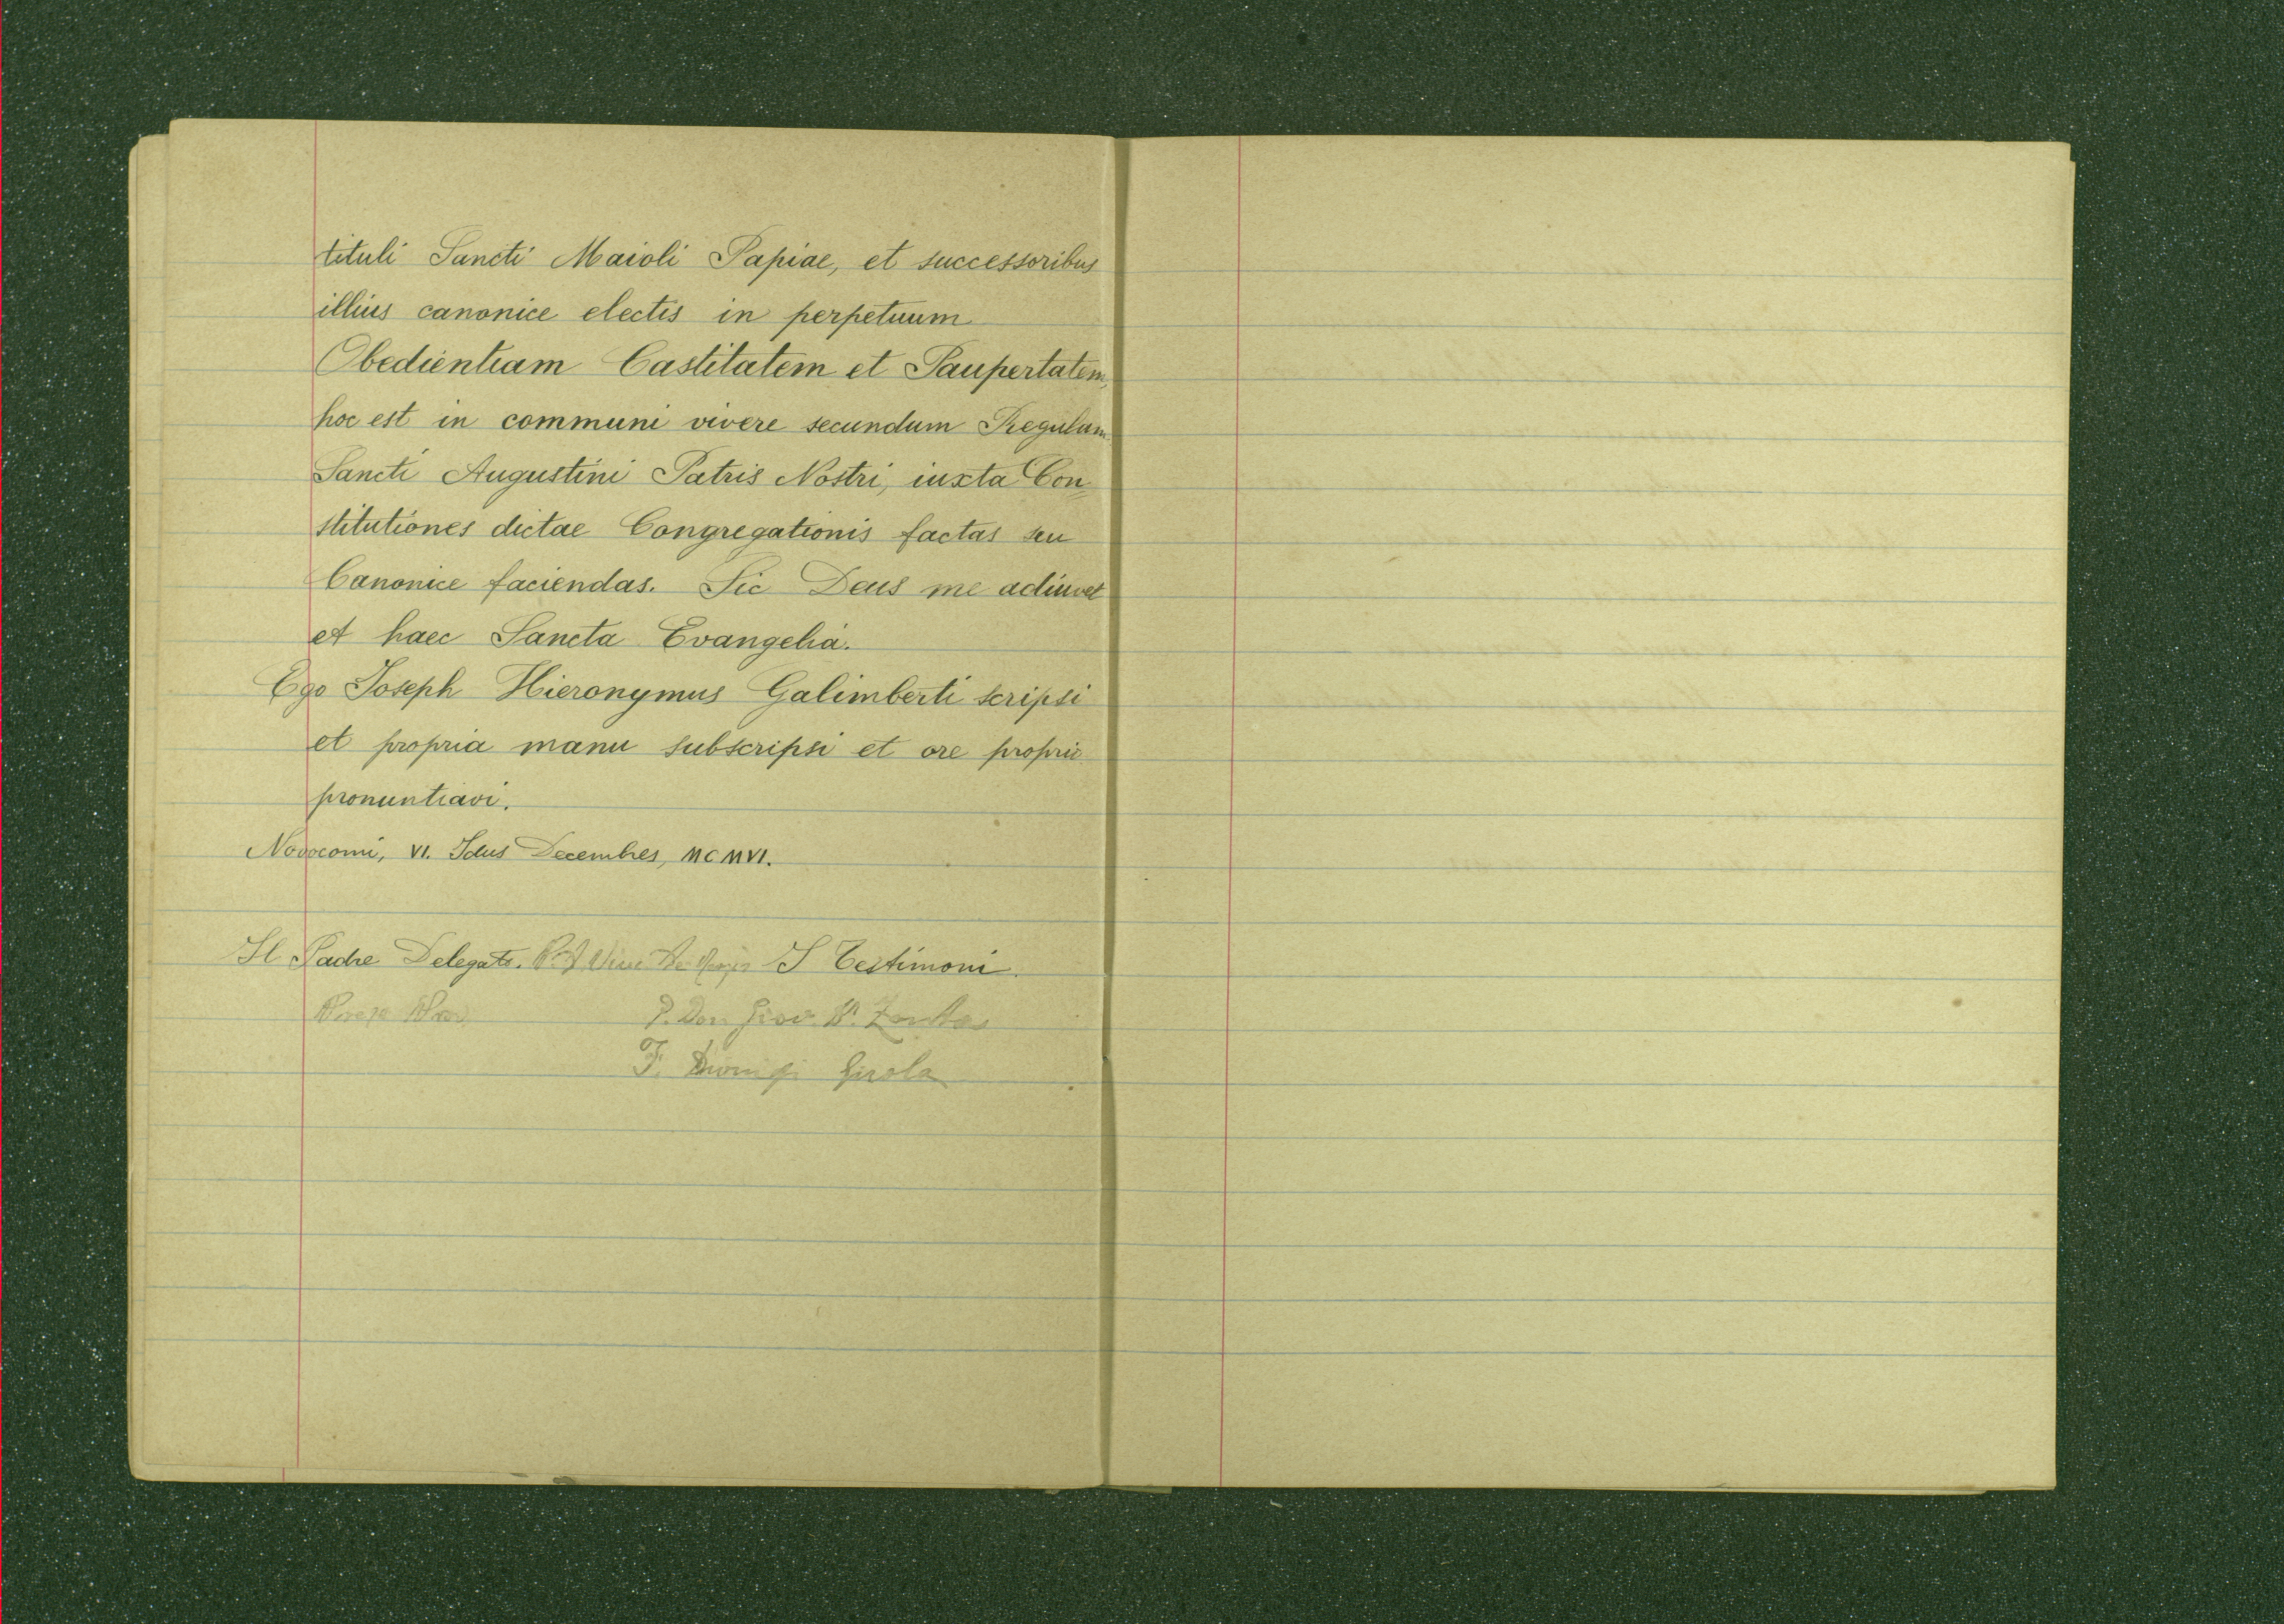 tituli Sancti Maioli Papiae, et successoribus
illius canonice electis in perpetuum
Obedientiam Castitatem et Paupertatem,
hoc est in communi vivere secundum Regulam
Sancti Augustini Patris Nostri, iuxta Con
stitutiones dictae Congregationis factas seu
Canonice faciendas. Sic Deus me adiuvet
et haec Sancta Evangelia.
Ego Joseph Hieronymus Galimberti scripsi
et propria manu subscripsi et ore proprio
pronuntiavi.
Novocomi, VI. Idus Decembres, MCMVI.
Il Padre Delegato. I Testimoni.
P. Don Giov. B.
F. Dionigi Girola